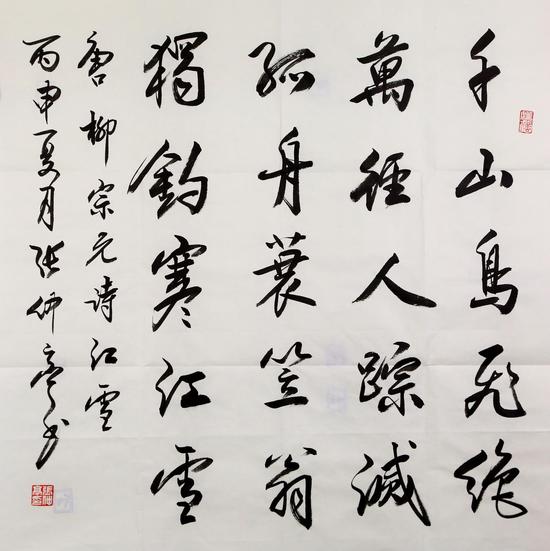 千山鳥飛絶
萬徑人踪滅
孤舟蓑笠翁
獨釣寒江雪
唐柳宗元詩江雪
丙申夏月張仲亭书